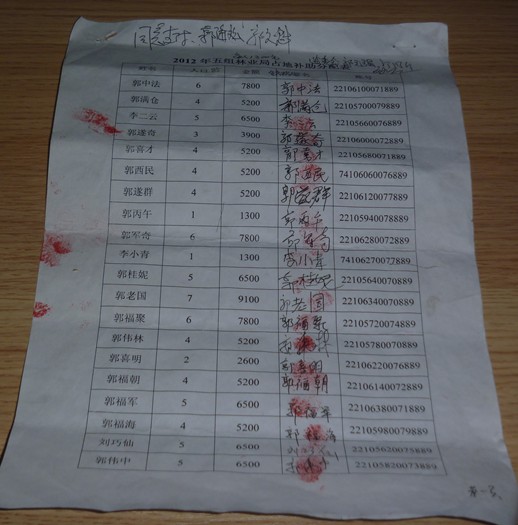 2012 年五组林业局占地补助分配表
姓名 人口数 金额 账号
郭中法 6 7800 郭中法 22106100071889
郭满仓 4 5200 郭满仓 22105700079889
李二云 5 6500 22105660076889
郭遂奇 3 3900 郭遂奇 22106000072889
郭喜才 4 5200 郭喜才 22105680071889
郭西民 4 5200 郭西民 74106060076889
郭遂群 4 5200 郭遂群 22106120077889
郭丙午 1 1300 郭丙午 22105940078889
郭军奇 6 7800 郭军奇 22106280072889
李小青 1 1300 李小青 74106270072889
郭桂妮 5 6500 郭桂妮 22105640070889
郭老国 7 9100 郭老国 22106340070889
郭福聚 6 7800 郭福聚 22105720074889
郭伟林 4 5200 22105780070889
郭喜明 2 2600 郭喜明 22106220076889
郭福朝 4 5200 郭福朝 22106140072889
郭福军 5 6500 郭福军 22106380071889
郭福海 4 5200 郭福海 22105980079889
刘巧仙 5 6500 22105620078889
郭伟中 5 6500 22105820073889
第一页